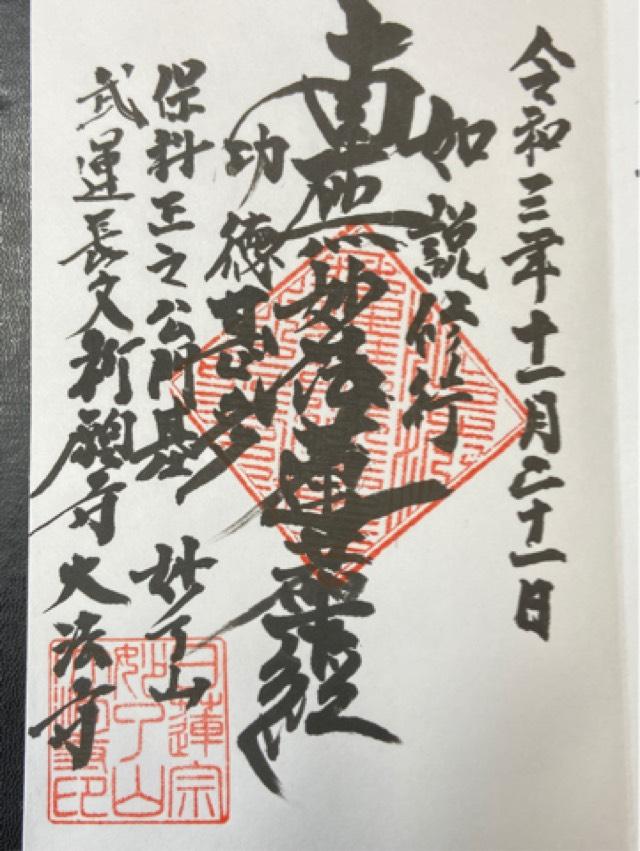 令和三年十一月二十一日
如説修行
南無妙法蓮華経
功徳甚多
保科正之公開基 妙了山
武運長久祈願寺 大法寺
日蓮宗
妙了山